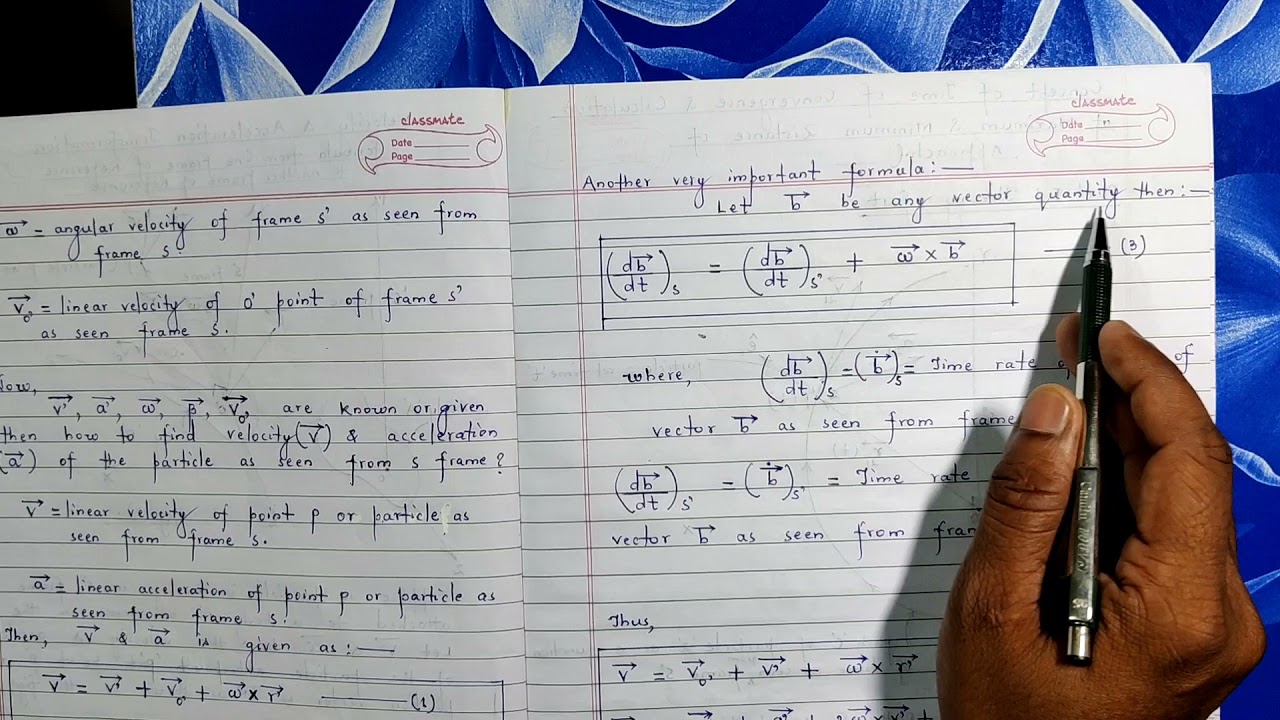 classmate
Date
Page
ω⃗ = angular velocity of frame s' as seen from
frame s.
v⃗ₒ' = linear velocity of o' point of frame s'
as seen frame s.
Now,
v⃗', a⃗', ω⃗, β⃗, v⃗ₒ' are known or given
then how to find velocity(v⃗) & acceleration
(a⃗) of the particle as seen from s frame?
v⃗ = linear velocity of point p or particle as
seen from frame s.
a⃗ = linear acceleration of point p or particle as
seen from frame s.
Then, v⃗ & a⃗ is given as:—
v⃗ = v⃗' + v⃗ₒ' + ω⃗×r⃗' —— (1)
classmate
Date
Page
Another very important formula:—
Let b⃗ be any vector quantity then:—
(db⃗/dt)ₛ = (db⃗/dt)ₛ' + ω⃗×b⃗ —— (3)
where, (db⃗/dt)ₛ = (ḃ⃗)ₛ = Time rate of
vector b⃗ as seen from frame
(db⃗/dt)ₛ' = (ḃ⃗)ₛ' = Time rate
vector b⃗ as seen from
Thus,
v⃗ = v⃗ₒ' + v⃗' + ω⃗×r⃗'